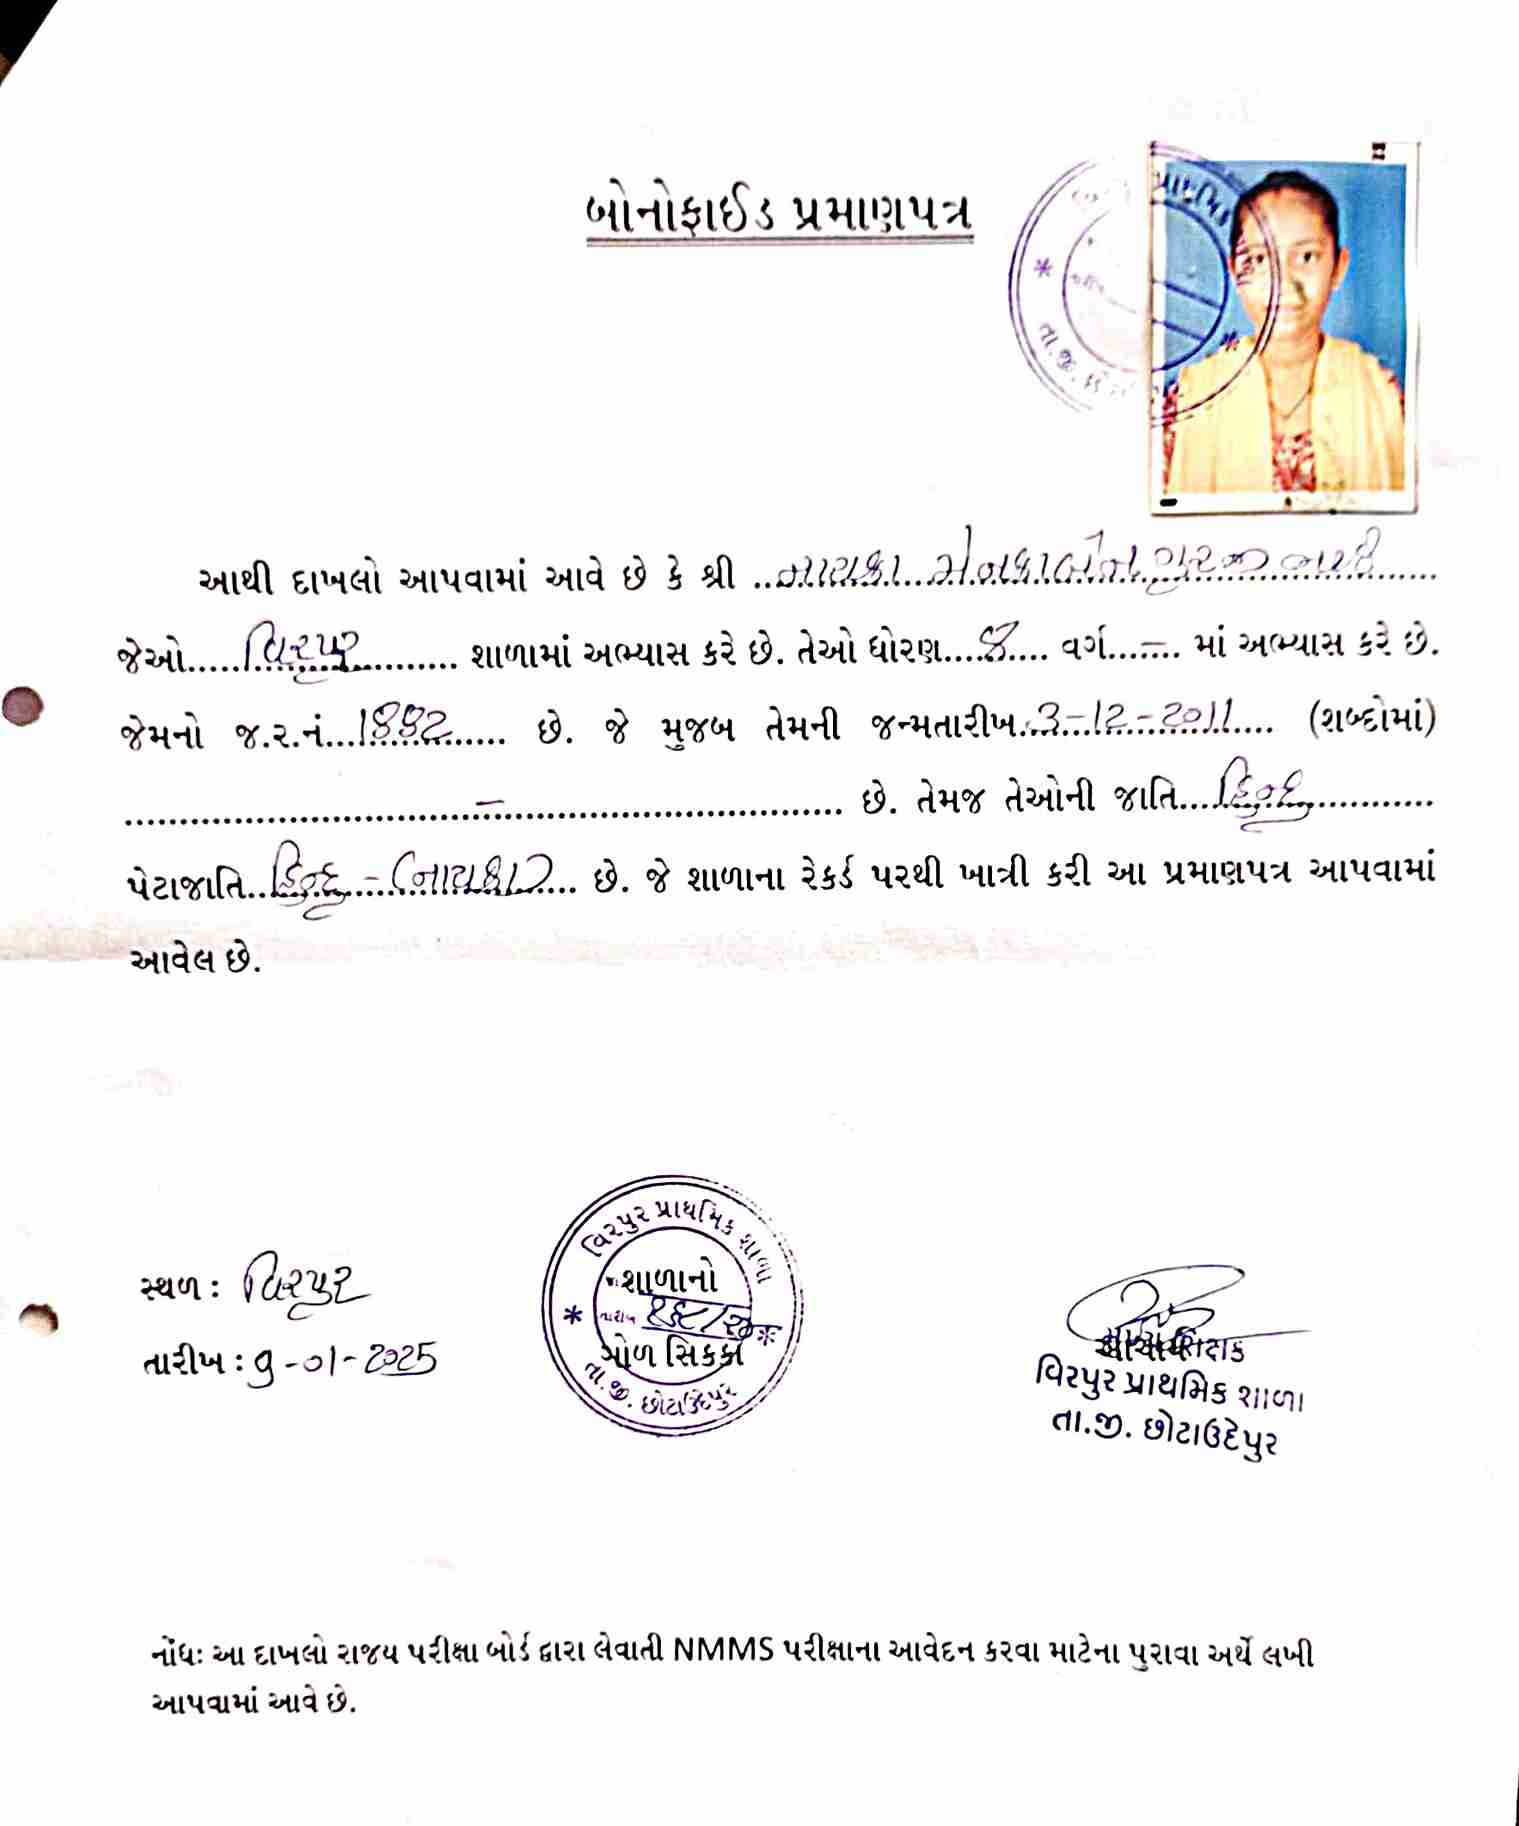 બોનોફાઈડ પ્રમાણપત્ર
આથી દાખલો આપવામાં આવે છે કે શ્રી ..નાયકા...મેનકાબેન
જેઓ.....વિરપુર.......... શાળામાં અભ્યાસ કરે છે. તેઓ ધોરણ....8.... વર્ગ...–... માં અભ્યાસ કરે છે.
જેમનો જ.ર.નં...1882...... છે. જે મુજબ તેમની જન્મતારીખ..3-12-2011.... (શબ્દોમાં)
...................................–................................... છે. તેમજ તેઓની જાતિ....હિન્દુ............
પેટાજાતિ..હિન્દુ - (નાયકા).... છે. જે શાળાના રેકર્ડ પરથી ખાત્રી કરી આ પ્રમાણપત્ર આપવામાં
આવેલ છે.
વિરપુર પ્રાથમિક શાળા
શાળાનો
તારીખ
ગોળ સિક્કો
તા.જી. છોટાઉદેપુર
સ્થળ : વિરપુર
તારીખ : 9-01-2025
વિરપુર પ્રાથમિક શાળા
તા.જી. છોટાઉદેપુર
નોંધઃ આ દાખલો રાજય પરીક્ષા બોર્ડ દ્વારા લેવાતી NMMS પરીક્ષાના આવેદન કરવા માટેના પુરાવા અર્થે લખી
આપવામાં આવે છે.